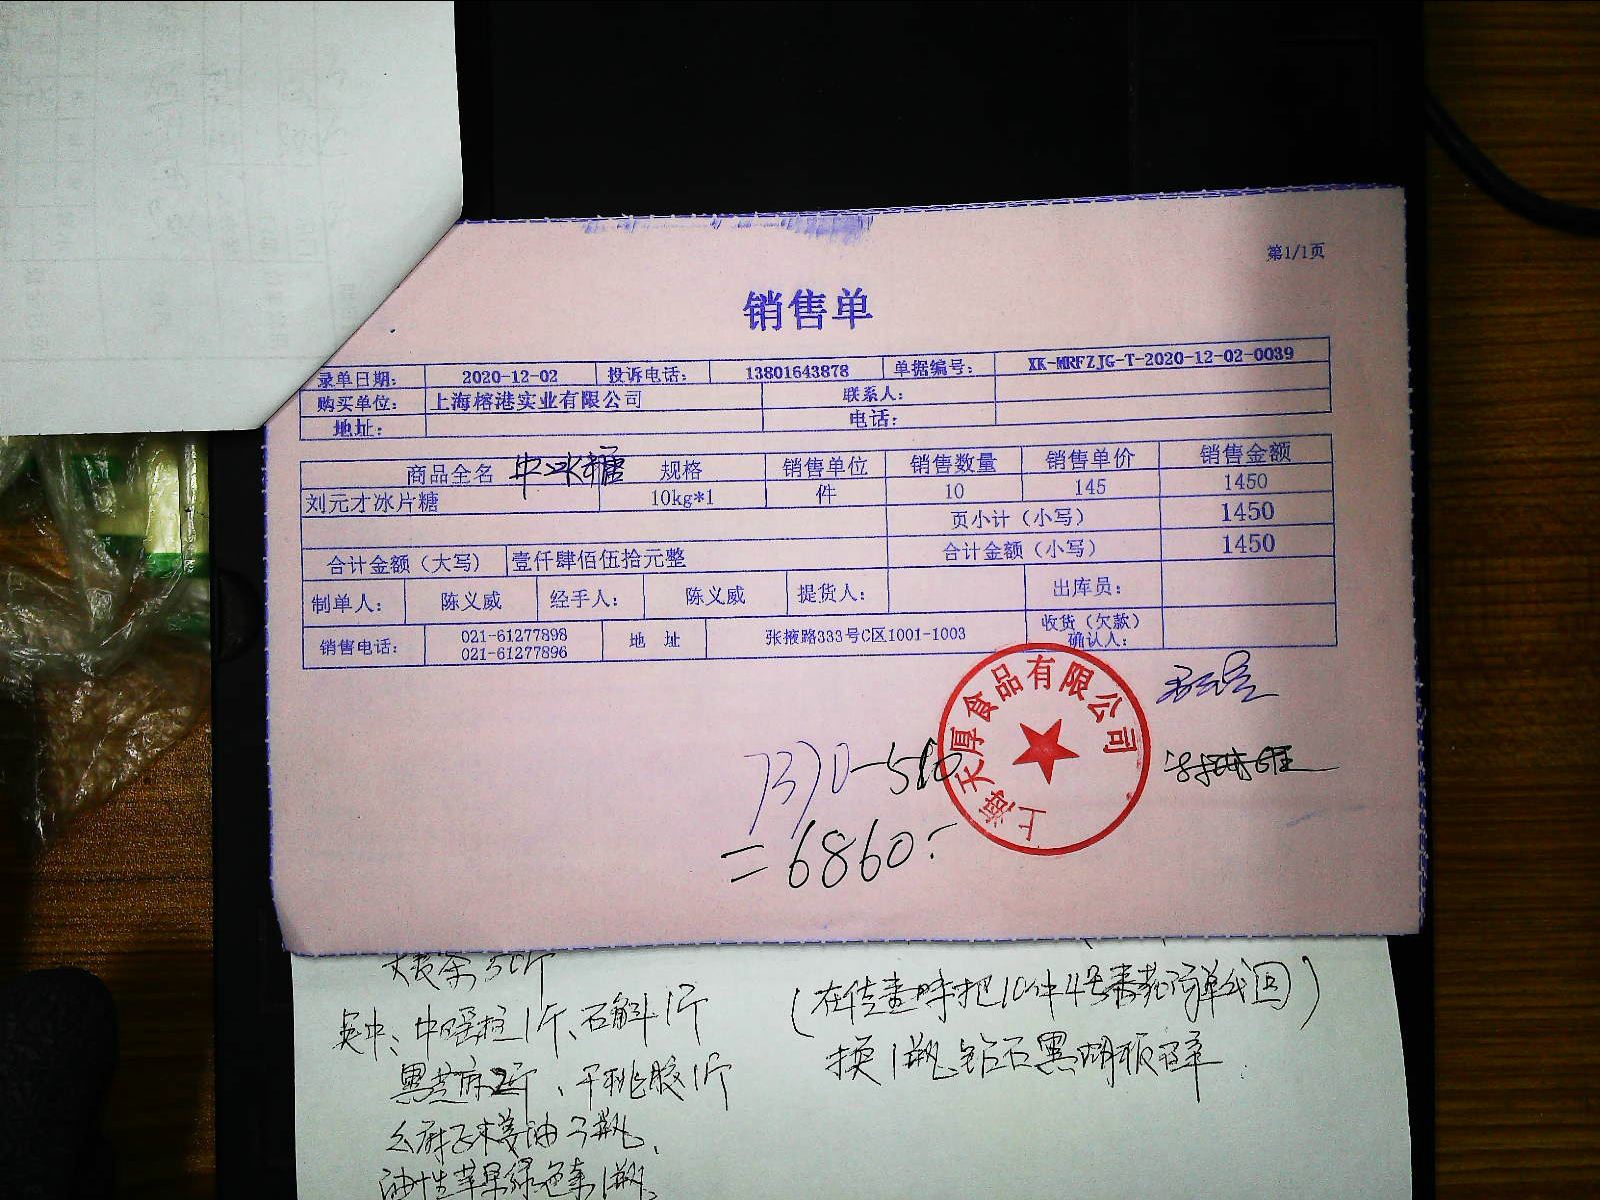 第1/1页
销售单
录单日期： 2020-12-02 投诉电话： 13801643878 单据编号： XK-MRFZJG-T-2020-12-02-0039
购买单位： 上海榕港实业有限公司 联系人：
地址： 电话：
商品全名 中冰糖 规格 销售单位 销售数量 销售单价 销售金额
刘元才冰片糖 10kg*1 件 10 145 1450
页小计（小写） 1450
合计金额（大写） 壹仟肆佰伍拾元整 合计金额（小写） 1450
制单人： 陈义威 经手人： 陈义威 提货人： 出库员：
销售电话： 021-61277898 021-61277896 地 址 张掖路333号C区1001-1003 收货（欠款）确认人：
上海天厚食品有限公司
7370-510
=6860
茶50斤
1斤、石斛1斤 （在佳 时把10件4号 单 回）
黑芝麻2斤、干桃胶1斤 换1瓶钻石黑胡
油 瓶
油性苹果绿色素1瓶